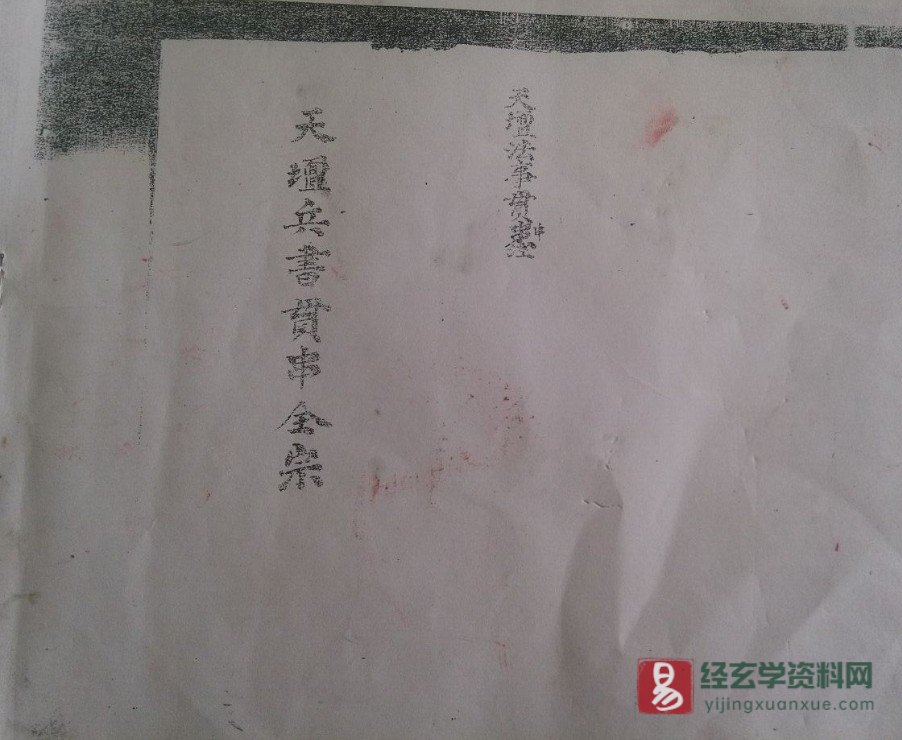 天壇法事貫串
天壇兵書貫串全宗
经玄学资料网
yijingxuanxue.com